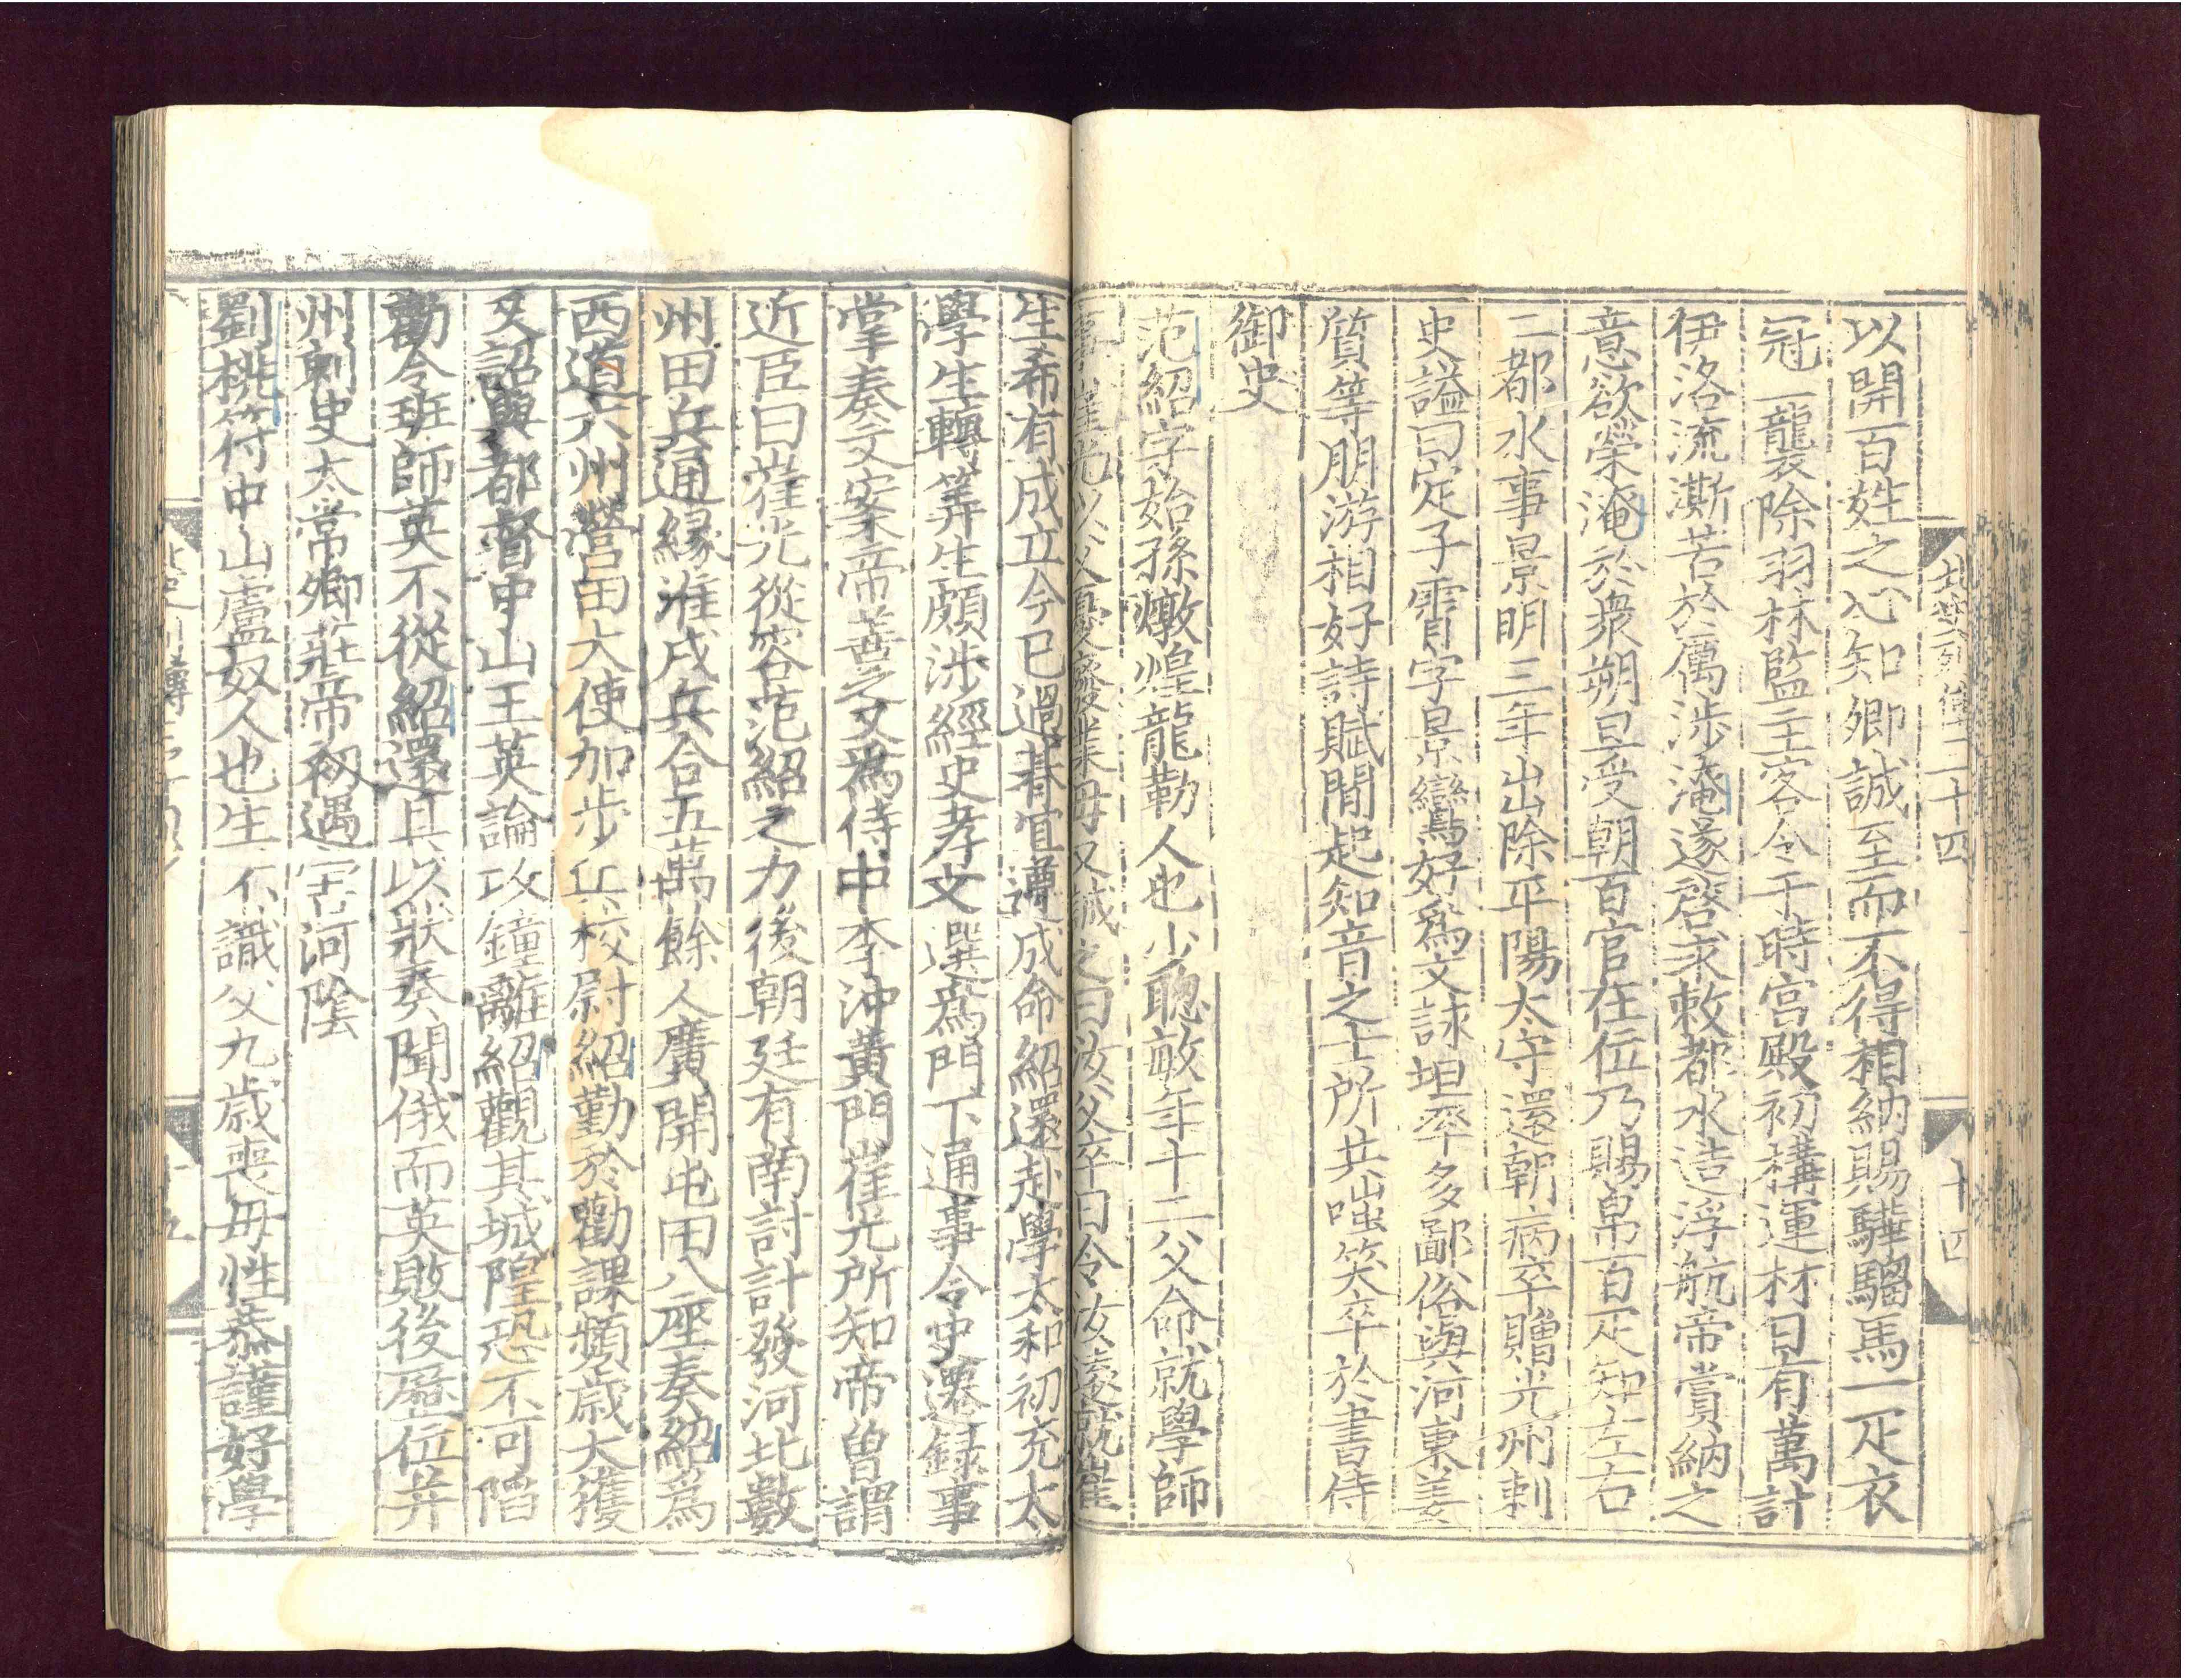 北史列傳三十四
十四
以開百姓之心知卿誠至而不得相納賜驊騮馬一疋衣
冠一襲除羽林監主客令于時宮殿初構運材日有萬計
伊洛流澌苦於厲涉淹遂啓求敕都水造浮航帝賞納之
意欲榮淹於衆朔旦受朝百官在位乃賜帛百疋知左右
二都水事景明三年出除平陽太守還朝病卒贈光州刺
史謚曰定子霄字景鸞好爲文詠坦率多鄙俗與河東姜
質等朋游相好詩賦間起知音之士所共嗤笑卒於書侍
御史
范紹字始孫燉煌龍勒人也少聰敏年十二父命就學師
事崔光以父憂廢業母又誡之曰汝父卒日令汝遠就崔
生希有成立今已過朞宜遵成命紹還赴學太和初充太
學生轉筭生頗涉經史孝文選爲門下通事令史遷録事
掌奏文案帝善之又爲侍中李沖黄門崔光所知帝曽謂
近臣曰崔光從容范紹之力後朝廷有南討計發河北數
州田兵通緣淮戍兵合五萬餘人廣開屯田八座奏紹爲
西道六州營田大使加步兵校尉紹勤於勸課頻歲大獲
又詔與都督中山王英論攻鐘離紹觀其城隍恐不可陷
勸令班師英不從紹還具以狀奏聞俄而英敗後歷位并
州刺史太常卿莊帝初遇害河陰
劉桃符中山盧奴人也生不識父九歲喪母性恭謹好學